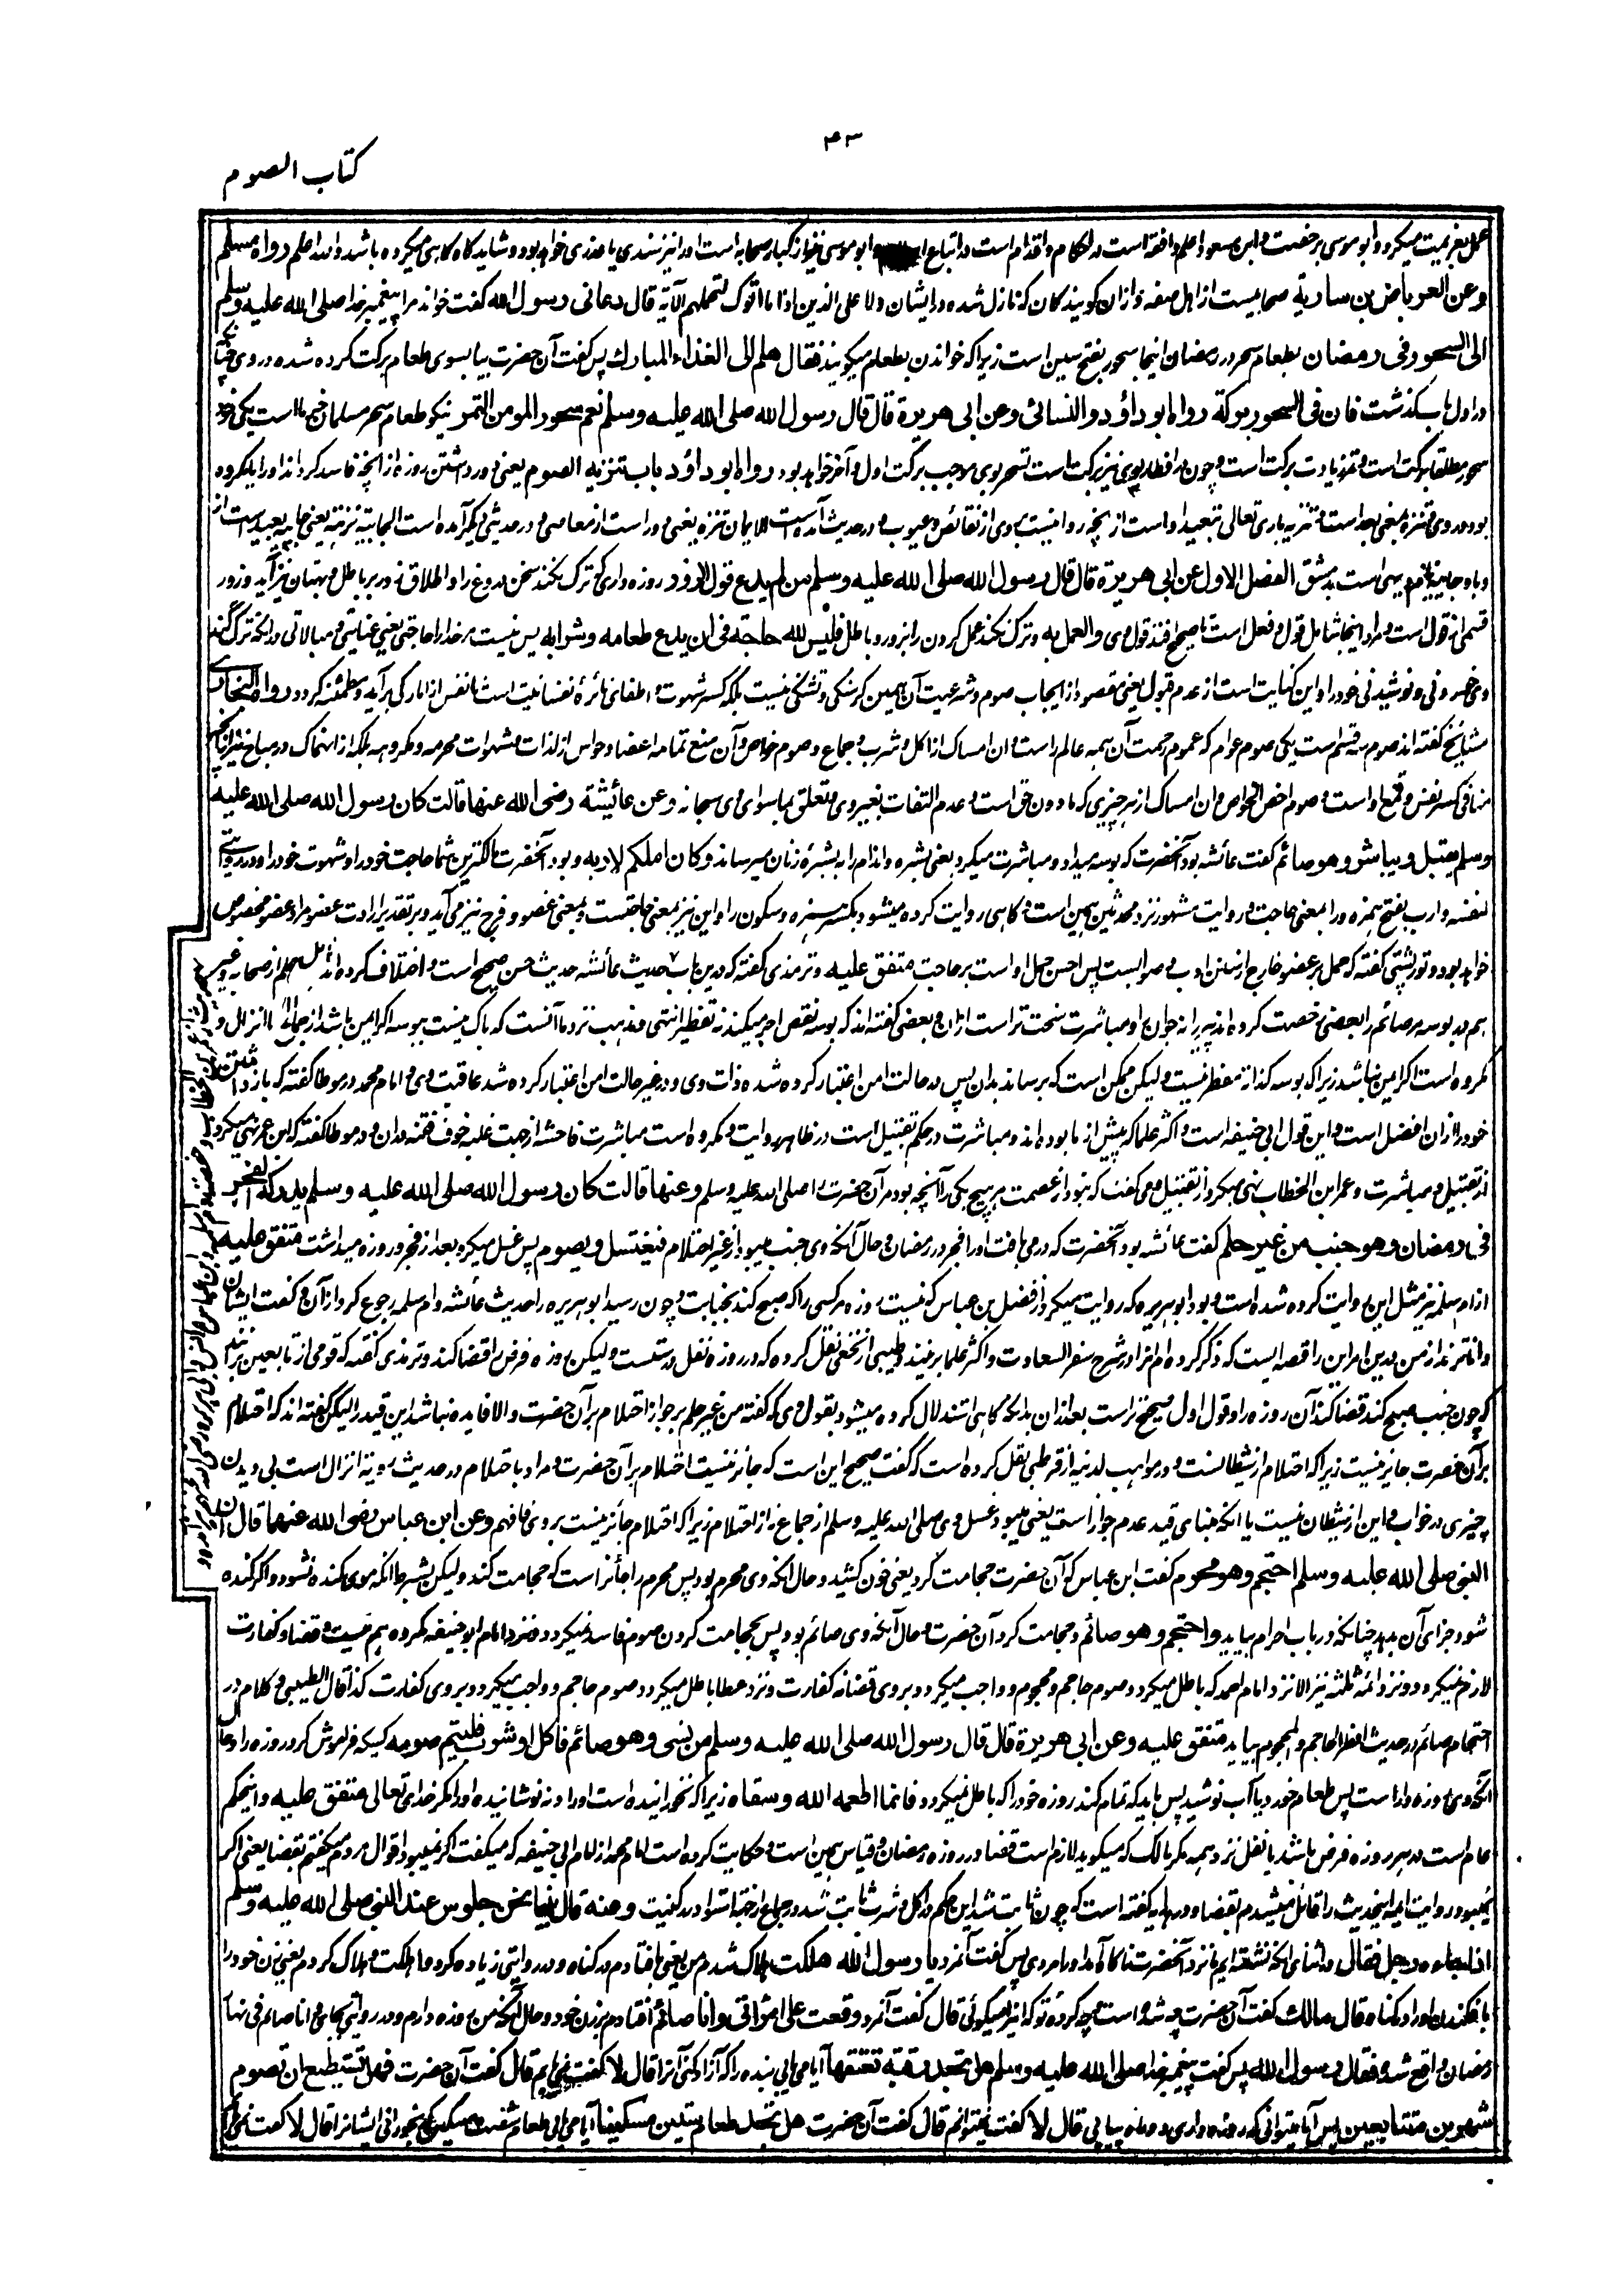 ۴۳
کتاب الصوم
عمل بعزیمت میکرد و ابو موسی برخصت و ابن مسعود اعلم و افقه است در احکام و اقدام است در اتباع و ابو موسی نیز از کبار صحابه است او را نیز سندی یا عذری خواهد بود و شاید گاه گاهی میکرده باشد و الله اعلم رواه مسلم
وعن العرباض بن ساریة صحابیست از اهل صفه و از آن گویندگان که نازل شده در ایشان ولا علی الذین اذا ما اتوک لتحملهم الآیة قال دعانی رسول الله گفت خواند مرا پیغمبر خدا صلی الله علیه وسلم
الی السحور فی رمضان بطعام سحور در رمضان اینجا سحور بفتح سین است زیرا که خواندن بطعام میگویند فقال هلم الی الغذاء المبارک پس گفت آن حضرت بیا بسوی طعام برکت کرده شده در وی چنانکه
در اول باب گذشت فان فی السحور برکة رواه ابو داؤد والنسائی وعن ابی هریرة قال قال رسول الله صلی الله علیه وسلم نعم سحور المومن التمر نیکو طعام سحر مسلمان خرما است یکی خود
سحور مطلقا برکت است و تمر زیادت برکت است و چون در افطار بوی نیز برکت است تسحر بوی موجب برکت اول و آخر خواهد بود رواه ابو داؤد باب تنزیه الصوم یعنی دور داشتن روزه از آنچه فاسد گرداند او را یا مکروه
بود در وی و تنزه بمعنی بعد است و تنزیه باری تعالی تبعید او است از آنچه روا نیست بوی از نقائص و عیوب و در حدیث آمده است الایمان نزه یعنی دور است از معاصی و در حدیثی دیگر آمده است الجابیة نزهة یعنی جابیه بعید است از
و با و جابیه دیهی است بدمشق الفصل الاول عن ابی هریرة قال قال رسول الله صلی الله علیه وسلم من لم یدع قول الزور روزه داری که ترک نکند سخن دروغ را و اطلاق زور بر باطل و بهتان نیز آید و زور
قسمی از قول است و مراد اینجا شامل قول و فعل است تا صحیح افتد قول وی والعمل به و ترک نکند عمل کردن را بزور و باطل فلیس لله حاجة فی ان یدع طعامه وشرابه پس نیست مر خدا را حاجتی یعنی عنایتی و مبالاتی در آنکه ترک کند
وی خوردنی و نوشیدنی خود را و این کنایت است از عدم قبول یعنی مقصود از ایجاب صوم و شرعیت آن همین گرسنگی و تشنگی نیست بلکه کسر شهوت و اطفای نائرهٔ نفسانیت است تا نفس از امارگی برآید و مطمئنه گردد رواه البخاری
مشایخ گفته اند صوم سه قسم است یکی صوم عوام که عموم رحمت آن همه عالم راست و آن امساک از اکل و شرب و جماع و صوم خواص و آن منع تمامه اعضا و حواس از لذات و شهوات محرمه و مکروهه بلکه از انهماک در مباح نیز آنچه
منافی کسر نفس و قمع او است و صوم اخص الخواص و آن امساک از هر چیزی که مادون حق است و عدم التفات بغیر وی و تعلق بماسوای وی سبحانه وعن عائیشة رضی الله عنها قالت کان رسول الله صلی الله علیه
وسلم یقبل ویباشر وهو صائم گفت عائشه بود آنحضرت که بوسه میداد و مباشرت میکرد یعنی بشره و اندام را به بشرهٔ زنان میرساند وکان املککم لاربه و بود آنحضرت مالکترین شما حاجت خود را و شهوت خود را و در روایتی
لنفسه و ارب بفتح همزه و را بمعنی حاجت و روایت مشهور نزد محدثین همین است و گاهی روایت کرده میشود بکسر همزه و سکون را و این نیز بمعنی حاجتست و بمعنی عضو و فرج نیز می آید و بر تقدیر ارادت عضو مراد عضو مخصوص
خواهد بود و تورپشتی گفته که حمل بر عضو خارج از سنن ادب و صوابست پس احسن حمل او است بر حاجت متفق علیه و ترمذی گفته که درین باب حدیث عائشه حدیث حسن صحیح است و اختلاف کرده اند اهل علم از صحابه و غیر
هم در بوسه مر صائم را بعضی رخصت کرده اند پیر را نه جوان را و مباشرت سخت تر است از آن و بعضی گفته اند که بوسه نقص اجر میکند نه تفطیر انتهی و مذهب نزد ما آنست که باک نیست ببوسه اگر ایمن باشد از جماع یا انزال و
مکروه است اگر ایمن نباشد زیرا که بوسه گذانه مفطر نیست ولیکن ممکن است که برساند بدان پس در حالت امن اعتبار کرده شده ذات وی و در غیر حالت امن اعتبار کرده شد عاقبت وی و امام محمد در موطا گفته که باز داشتن
خود را از آن افضل است و این قول ابی حنیفه است و اکثر علما که پیش از ما بوده اند و مباشرت در حکم تقبیل است در ظاهر روایت و مکروه است مباشرت فاحشه از جهت غلبه خوف فتنه در آن و در موطا گفته که ابن عمر نهی میکرد
از تقبیل و مباشرت و عمر ابن الخطاب نهی میکرد از تقبیل و می گفت که نبود از عصمت مر هیچ یکی را آنچه بود مر آن حضرت را صلی الله علیه وسلم وعنها قالت کان رسول الله صلی الله علیه وسلم یدرکه الفجر
فی رمضان وهو جنب من غیر حلم گفت عائشه بود آنحضرت که در می یافت او را فجر در رمضان و حال آنکه وی جنب میبود از غیر احتلام فیغتسل ویصوم پس غسل میکرد بعد از فجر و روزه میداشت متفق علیه
از ام سلمه نیز مثل این روایت کرده شده است و بود ابو هریره که روایت میکرد از فضل بن عباس که نیست روزه مر کسی را که صبح کند بجنابت و چون رسید ابو هریره را حدیث عائشه و ام سلمه رجوع کرد از آن و گفت ایشان
داناترند از من بدین امر این را قصه ایست که ذکر کرده ام انرا در شرح سفر السعادت و اکثر علما برینند و طیبی از نخعی نقل کرده که در روزه نفل درستست ولیکن روزه فرض را قضا کند و ترمذی گفته که قومی از تابعین برینند
که چون جنب صبح کند قضا کند آن روزه را و قول اول صحیح تر است بعد از آن بدانکه گاهی استدلال کرده میشود بقول وی که گفته من غیر حلم بر جواز احتلام بر آن حضرت و الا فایده نباشد این قید را لیکن گفته اند که احتلام
بر آن حضرت جائز نیست زیرا که احتلام از شیطانست و در مواهب لدنیه از قرطبی نقل کرده است که گفت صحیح این است که جائز نیست احتلام بر آن حضرت و مراد باحتلام در حدیث رویة انزال است بی دیدن
چیزی در خواب و این از شیطان نیست یا آنکه مبنای قید عدم جواز است یعنی میبود غسل وی صلی الله علیه وسلم از جماع نه از احتلام زیرا که احتلام جائز نیست بر وی فافهم وعن ابن عباس رضی الله عنهما قال ان
النبی صلی الله علیه وسلم احتجم وهو محرم گفت ابن عباس که آن حضرت حجامت کرد یعنی خون کشید و حال آنکه وی محرم بود پس محرم را جائز است که حجامت کند ولیکن بشرط آنکه موی کنده نشود و اگر کنده
شود جزای آن بدهد چنانکه در باب احرام بیاید واحتجم وهو صائم و حجامت کرد آن حضرت و حال آنکه وی صائم بود پس بحجامت کردن صوم فاسد نمیگردد و نزد امام ابو حنیفه مکروه هم نیست و قضا و کفارت
لازم نمیگردد و نزد ائمه ثلثه نیز الا نزد امام احمد که باطل میگردد صوم حاجم و محجوم و واجب میگردد بر وی قضا نه کفارت و نزد عطا باطل میگردد صوم حاجم و واجب میگردد بر وی کفارت کذا قال الطیبی و کلام در
احتجام صائم در حدیث افطر الحاجم والمحجوم بیاید متفق علیه وعن ابی هریرة قال قال رسول الله صلی الله علیه وسلم من نسی وهو صائم فاکل او شرب فلیتم صومه کسیکه فراموش کرد روزه را و حال
آنکه وی روزه دار است پس طعام خورد یا آب نوشید پس باید که تمام کند روزه خود را که باطل نمیگردد فانما اطعمه الله وسقاه زیرا که نخورانیده است او را و نه نوشانیده او را مگر خدای تعالی متفق علیه و این حکم
عام است در هر روزه فرض باشد یا نفل نزد همه مگر مالک که میگوید لازم است قضا در روزه رمضان و قیاس همین است و حکایت کرده است امام محمد از امام ابی حنیفه که میگفت اگر نمیبود اقوال مردم میگفتم بقضا یعنی اگر
نمیبود روایت ایشان این حدیث را قائل میشدم بقضا و در هدایه گفته است که چون ثابت شد این حکم در اکل و شرب ثابت شد در جماع از جهت استوا در رکنیت وعنه قال بینما نحن جلوس عند النبی صلی الله علیه وسلم
اذ جاءه رجل فقال در اثنای آنکه نشسته ایم ما نزد آنحضرت ناگاه آمد او را مردی پس گفت آن مرد یا رسول الله هلکت هلاک شدم من یعنی بافتادم در گناه و در روایتی زیاده کرد و اهلکت و هلاک کردم یعنی زن خود را
بافکندن او را در گناه قال مالک گفت آن حضرت چه شده است و چه کردهٔ تو که این میگوئی قال گفت آن مرد وقعت علی امرأتی وانا صائم افتادم بر زن خود و حال آنکه من روزه دارم و در روایتی بجای وانا صائم فی نهار
رمضان واقع شده فقال رسول الله پس گفت پیغمبر خدا صلی الله علیه وسلم هل تجد رقبة تعتقها آیا می یابی بنده را که آزاد کنی آنرا قال لا گفت نمی یابم قال گفت آن حضرت فهل تستطیع ان تصوم
شهرین متتابعین پس آیا میتوانی که روزه داری دو ماه پیاپی قال لا گفت نمیتوانم قال گفت آن حضرت هل تجد طعام ستین مسکینا آیا می یابی طعام شصت مسکین که بخورانی ایشانرا قال لا گفت نمی یابم